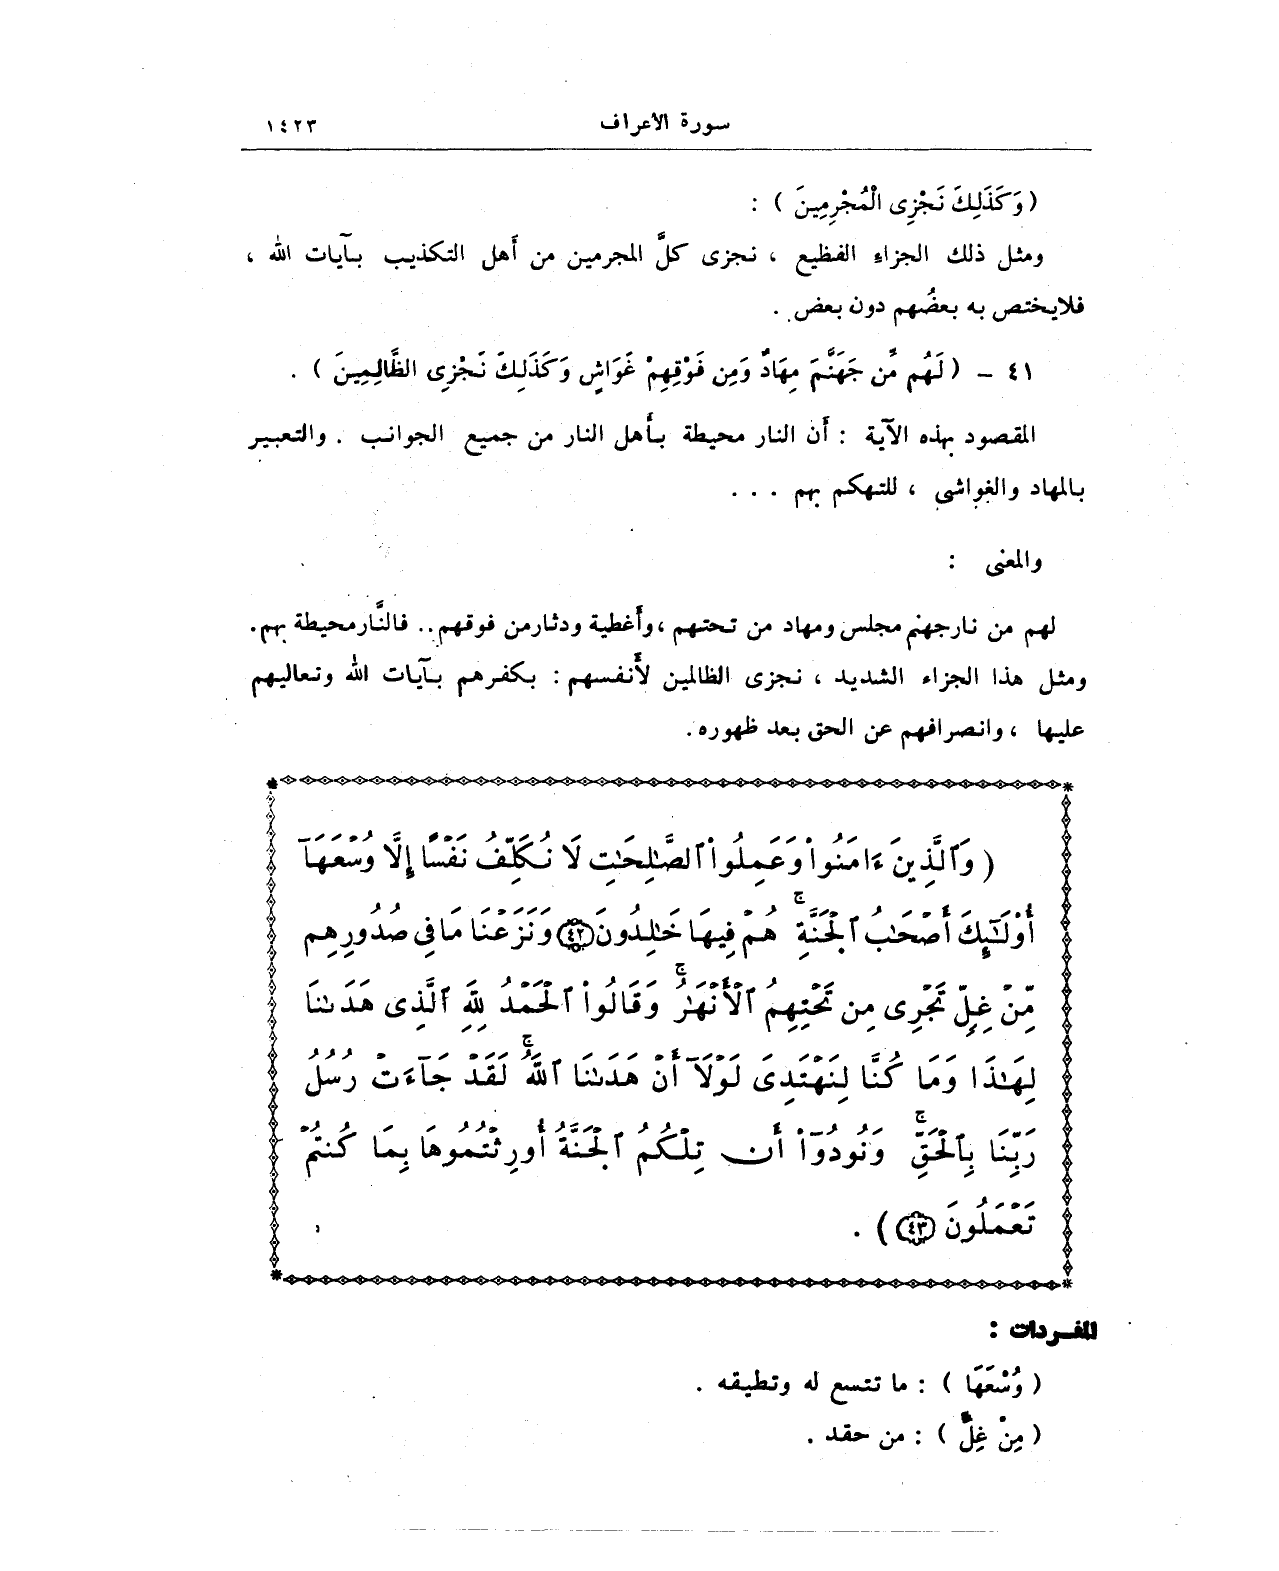 سورة الأعراف ١٤٢٣
( وَكَذَلِكَ نَجْزِى الْمُجْرِمِينَ ) :
ومثل ذلك الجزاءِ الفظيع ، نجزى كلَّ المجرمين من أَهل التكذيب بآيات الله ،
فلايختص به بعضُهم دون بعض .
٤١ - ( لَهُم مِّن جَهَنَّمَ مِهَادٌ وَمِن فَوْقِهِمْ غَوَاشٍ وَكَذَلِكَ نَجْزِى الظَّالِمِينَ ) .
المقصود بهذه الآية : أَن النار محيطة بأَهل النار من جميع الجوانب . والتعبير
بالمهاد والغواشى ، للتهكم بهم . . .
والمعنى :
لهم من نارجهنم مجلس ومهاد من تحتهم ،وأَغطية ودثارمن فوقهم.. فالنَّارمحيطة بهم.
ومثل هذا الجزاء الشديد ، نجزى الظالمين لأَنفسهم : بكفرهم بآيات الله وتعاليهم
عليها ، وانصرافهم عن الحق بعد ظهوره.
( وَٱلَّذِينَ ءَامَنُوا۟ وَعَمِلُوا۟ ٱلصَّـٰلِحَـٰتِ لَا نُكَلِّفُ نَفْسًا إِلَّا وُسْعَهَآ
أُو۟لَـٰٓئِكَ أَصْحَـٰبُ ٱلْجَنَّةِ ۚ هُمْ فِيهَا خَـٰلِدُونَ ٤٢ وَنَزَعْنَا مَا فِى صُدُورِهِم
مِّنْ غِلٍّ تَجْرِى مِن تَحْتِهِمُ ٱلْأَنْهَـٰرُ ۚ وَقَالُوا۟ ٱلْحَمْدُ لِلَّهِ ٱلَّذِى هَدَىٰنَا
لِهَـٰذَا وَمَا كُنَّا لِنَهْتَدِىَ لَوْلَآ أَنْ هَدَىٰنَا ٱللَّهُ ۚ لَقَدْ جَآءَتْ رُسُلُ
رَبِّنَا بِٱلْحَقِّ ۚ وَنُودُوٓا۟ أَن تِلْكُمُ ٱلْجَنَّةُ أُورِثْتُمُوهَا بِمَا كُنتُمْ
تَعْمَلُونَ ٤٣ ) .
المفردات :
( وُسْعَهَا ) : ما تتسع له وتطيقه .
( مِنْ غِلٍّ ) : من حقد .